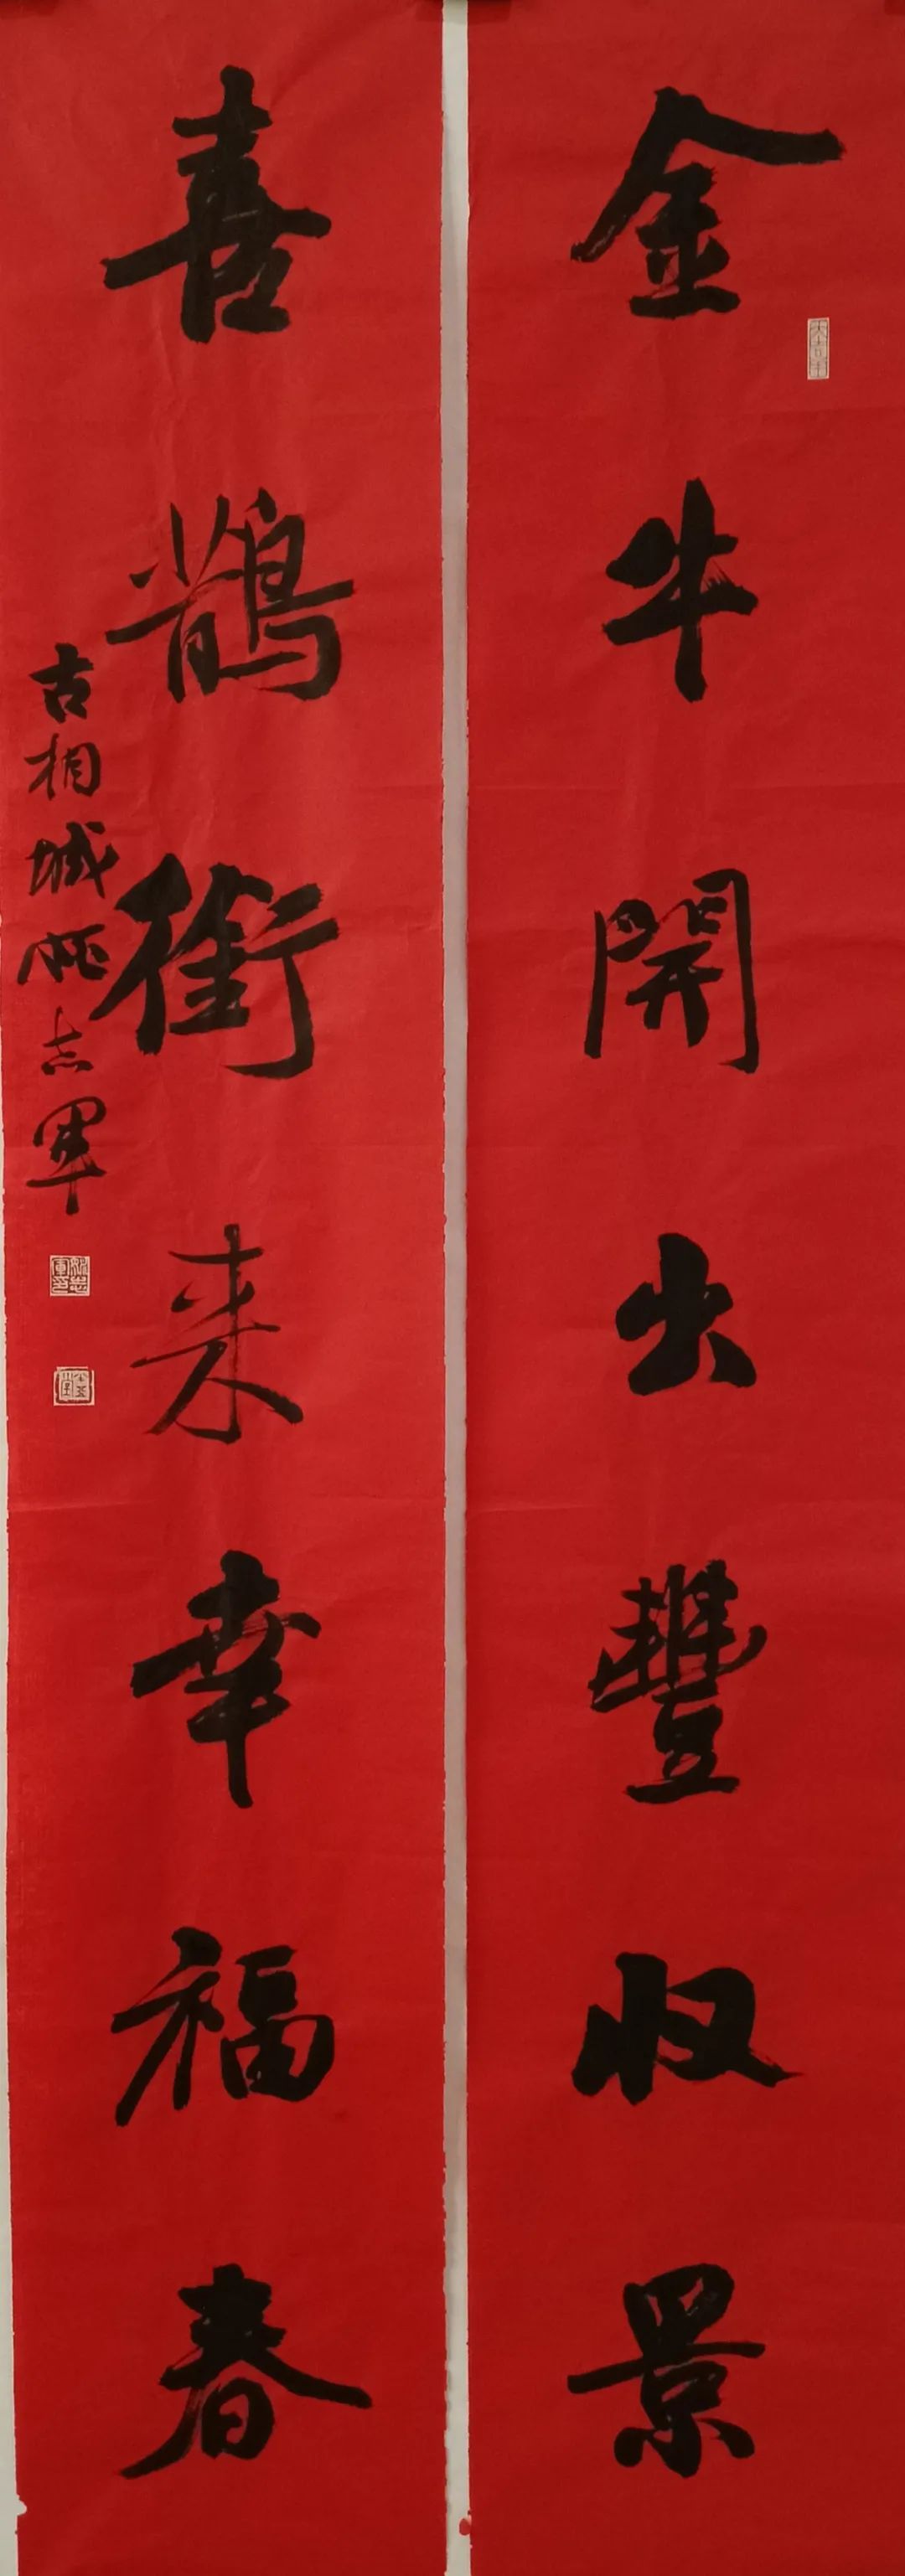 金牛開出豐收景
喜鵲銜来幸福春
古相城 志軍